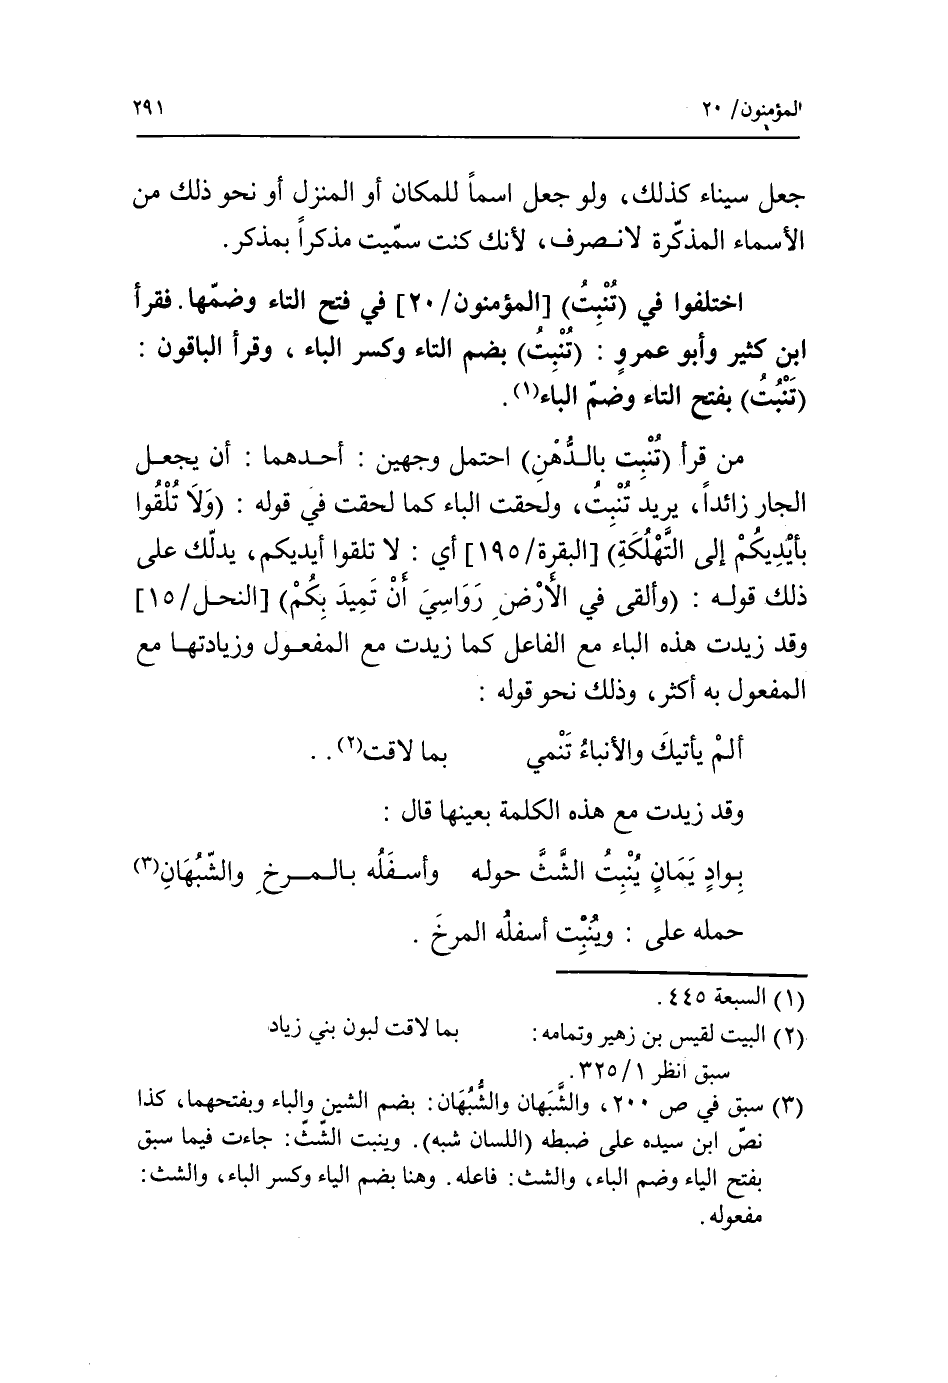 المؤمنون/ ٢٠ ٢٩١
جعل سيناء كذلك، ولو جعل اسماً للمكان أو المنزل أو نحو ذلك من
الأسماء المذكّرة لانـصرف، لأنك كنت سمّيت مذكراً بمذكر.
اختلفوا في (تُنْبِتُ) [المؤمنون/ ٢٠] في فتح التاء وضمّها. فقرأ
ابن كثير وأبو عمرٍو : (تُنْبِتُ) بضم التاء وكسر الباء ، وقرأ الباقون :
(تَنْبُتُ) بفتح التاء وضمّ الباء(١).
من قرأ (تُنْبِت بالـدُّهْنِ) احتمل وجهين : أحـدهما : أن يجعـل
الجار زائداً، يريد تُنْبِتُ، ولحقت الباء كما لحقت في قوله : (وَلَا تُلْقُوا
بأيْدِيكُمْ إلى التَّهْلُكَةِ) [البقرة/ ١٩٥] أي : لا تلقوا أيديكم، يدلّك على
ذلك قولـه : (وألقى في الأَرْضِ رَوَاسِيَ أَنْ تَمِيدَ بِكُمْ) [النحـل/ ١٥]
وقد زيدت هذه الباء مع الفاعل كما زيدت مع المفعـول وزيادتهـا مع
المفعول به أكثر، وذلك نحو قوله :
ألمْ يأتيكَ والأنباءُ تَنْمي بما لاقت(٢) . .
وقد زيدت مع هذه الكلمة بعينها قال :
بـوادٍ يَمَانٍ يُنْبِتُ الشَّثَّ حوله وأسـفَلُه بـالـمـرخِ والشَّبُهَانِ(٣)
حمله على : ويُنْبِت أسفلُه المرخَ .
(١) السبعة ٤٤٥ .
(٢) البيت لقيس بن زهير وتمامه: بما لاقت لبون بني زياد
سبق انظر ١/ ٣٢٥.
(٣) سبق في ص ٢٠٠، والشَّبَهان والشُّبُهَان: بضم الشين والباء وبفتحهما، كذا
نصّ ابن سيده على ضبطه (اللسان شبه). وينبت الشّثّ: جاءت فيما سبق
بفتح الياء وضم الباء، والشث: فاعله. وهنا بضم الياء وكسر الباء، والشث:
مفعوله.